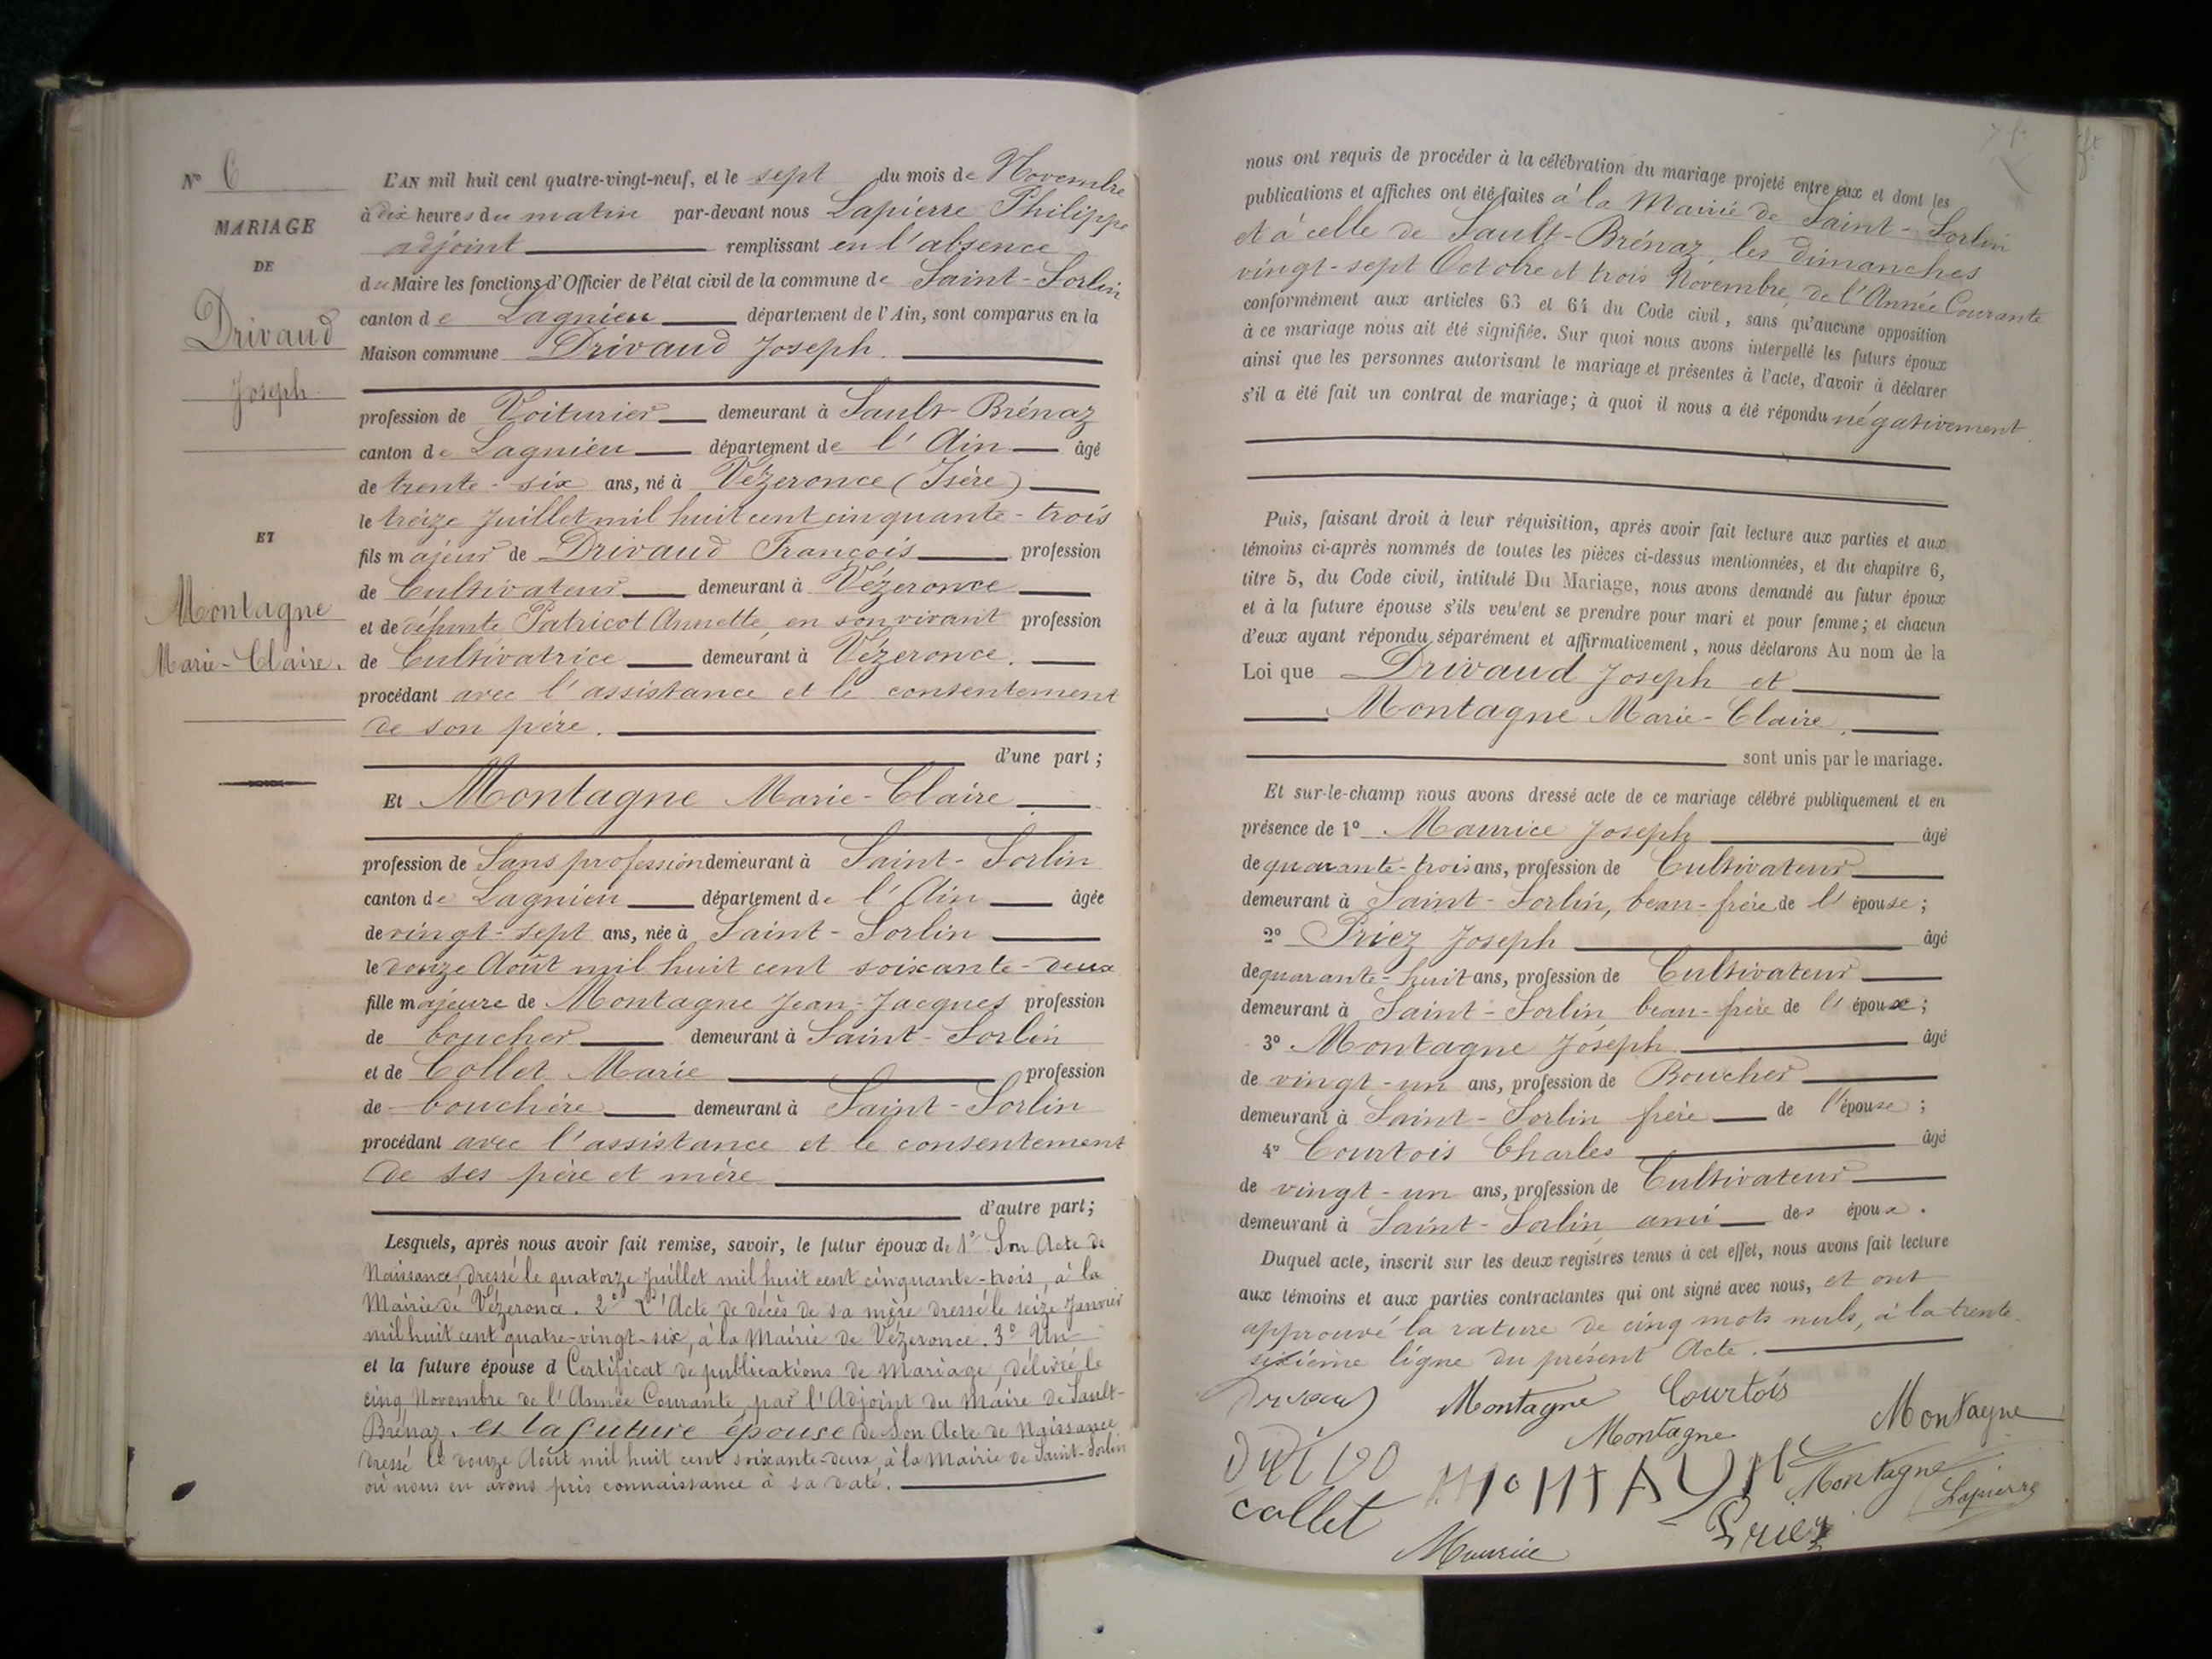 N° 6
MARIAGE
DE
Drivaud
Joseph
ET
Montagne
Marie-Claire.
L'AN mil huit cent quatre-vingt-neuf, et le sept du mois de Novembre
à dix heures du matin par-devant nous Lapierre Philippe
adjoint remplissant en l'absence
du Maire les fonctions d'Officier de l'état civil de la commune de Saint-Sorlin
canton de Lagnieu département de l'Ain, sont comparus en la
Maison commune Drivaud Joseph.
profession de Voiturier demeurant à Sault-Brénaz
canton de Lagnieu département de l'Ain âgé
de trente-six ans, né à Vézeronce (Isère)
le treize Juillet mil huit cent cinquante-trois
fils majeur de Drivaud François profession
de Cultivateur demeurant à Vézeronce
et de défunte Patricot Annette, en son vivant profession
de Cultivatrice demeurant à Vézeronce.
procédant avec l'assistance et le consentement
de son père.
d'une part;
Et Montagne Marie-Claire.
profession de Sans profession demeurant à Saint-Sorlin
canton de Lagnieu département de l'Ain âgée
de vingt-sept ans, née à Saint-Sorlin
le douze Août mil huit cent soixante-deux
fille majeure de Montagne Jean-Jacques profession
de boucher demeurant à Saint-Sorlin
et de Collet Marie profession
de bouchère demeurant à Saint-Sorlin
procédant avec l'assistance et le consentement
de ses père et mère
d'autre part;
Lesquels, après nous avoir fait remise, savoir, le futur époux de 1° Son Acte de
Naissance, dressé le quatorze Juillet mil huit cent cinquante-trois, à la
Mairie de Vézeronce. 2° L'Acte de décès de sa mère dressé le seize Janvier
mil huit cent quatre-vingt-six, à la Mairie de Vézeronce. 3° Un
et la future épouse d Certificat de publications de Mariage, délivré le
cinq Novembre de l'Année Courante, par l'Adjoint du Maire de Sault-
Brénaz. et la future épouse de Son Acte de Naissance
dressé le douze Août mil huit cent soixante-deux, à la Mairie de Saint-Sorlin
où nous en avons pris connaissance à sa date.
nous ont requis de procéder à la célébration du mariage projeté entre eux et dont les
publications et affiches ont été faites à la Mairie de Saint-Sorlin
et à celle de Sault-Brénaz, les dimanches
vingt-sept Octobre et trois Novembre, de l'Année Courante
conformément aux articles 63 et 64 du Code civil, sans qu'aucune opposition
à ce mariage nous ait été signifiée. Sur quoi nous avons interpellé les futurs époux
ainsi que les personnes autorisant le mariage et présentes à l'acte, d'avoir à déclarer
s'il a été fait un contrat de mariage; à quoi il nous a été répondu négativement.
Puis, faisant droit à leur réquisition, après avoir fait lecture aux parties et aux
témoins ci-après nommés de toutes les pièces ci-dessus mentionnées, et du chapitre 6,
titre 5, du Code civil, intitulé Du Mariage, nous avons demandé au futur époux
et à la future épouse s'ils veulent se prendre pour mari et pour femme; et chacun
d'eux ayant répondu séparément et affirmativement, nous déclarons Au nom de la
Loi que Drivaud Joseph et
Montagne Marie-Claire.
sont unis par le mariage.
Et sur-le-champ nous avons dressé acte de ce mariage célébré publiquement et en
présence de 1° Maurice Joseph âgé
de quarante-trois ans, profession de Cultivateur
demeurant à Saint-Sorlin, beau-frère de l'épouse;
2° Priez Joseph âgé
de quarante-huit ans, profession de Cultivateur
demeurant à Saint-Sorlin beau-frère de l'épouse;
3° Montagne Joseph âgé
de vingt-un ans, profession de Boucher
demeurant à Saint-Sorlin frère de l'épouse;
4° Courtois Charles âgé
de vingt-un ans, profession de Cultivateur
demeurant à Saint-Sorlin ami des époux.
Duquel acte, inscrit sur les deux registres tenus à cet effet, nous avons fait lecture
aux témoins et aux parties contractantes qui ont signé avec nous, et ont
approuvé la rature de cinq mots nuls, à la trente-
sixième ligne du présent Acte.
Drivaud Montagne Courtois Montagne
Montagne
collet Montagne Lapierre
Maurice Priez